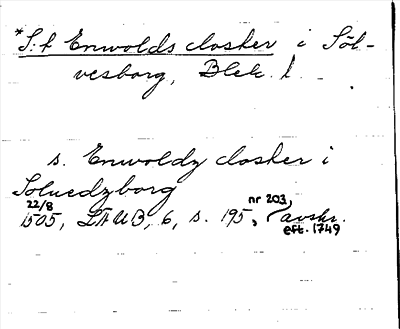 *S:t Enwolds closter i Söl-
vesborg, Blek. l.
s. Enwoldz closter i
Soluedzborg
22/8 1505, LÄUB, 6, s. 195, nr 203, avskr.
eft. 1749